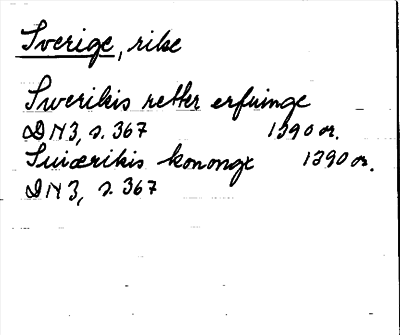 Sverige, rike
Swerikis retter erfuinge
DN3, s. 367 1390 or.
Suiærikis konongx 1390 or.
DN3, s. 367